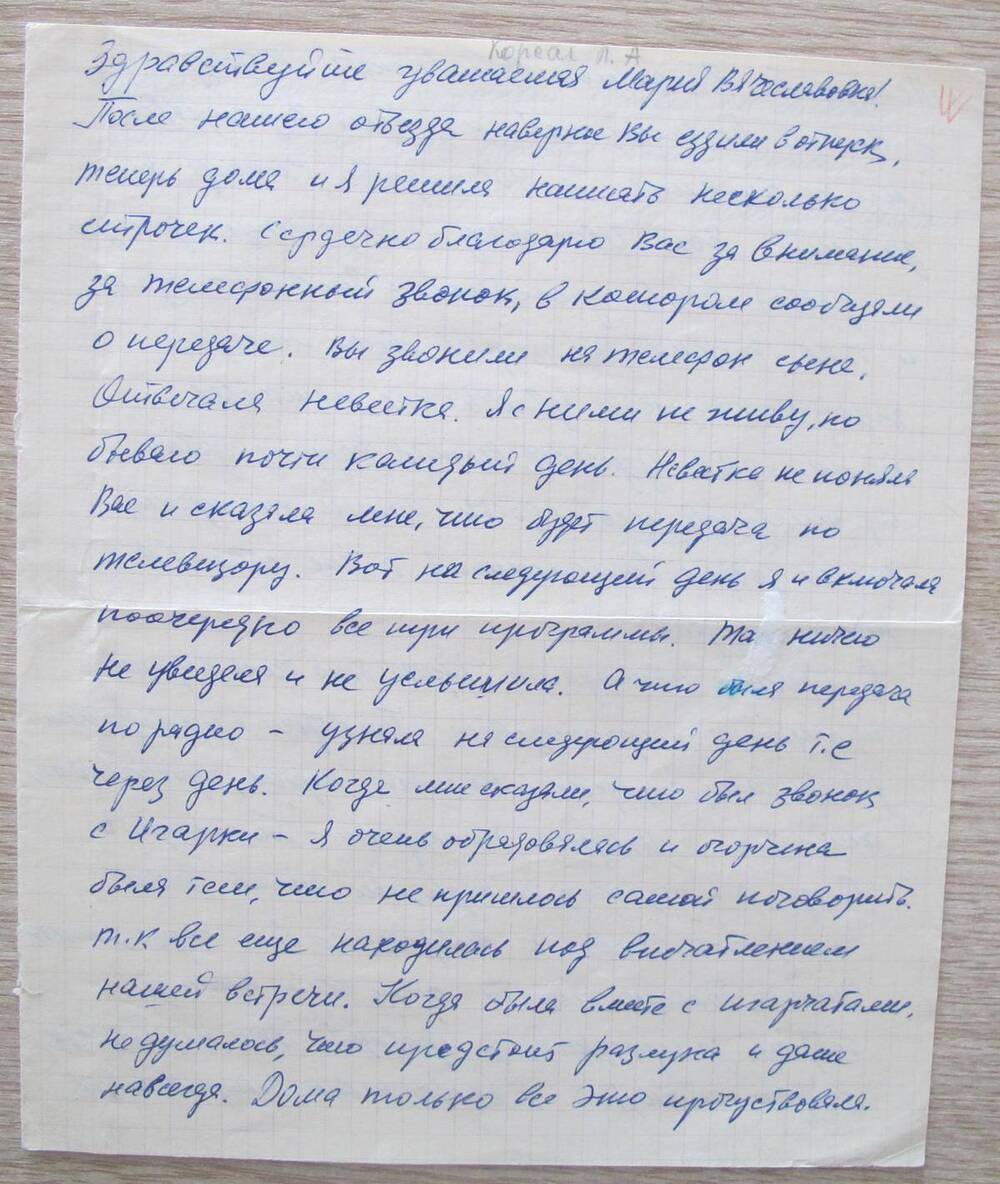 Корсак Л. А
Здравствуйте уважаемая Мария Вячеславовна!
После нашего отъезда наверное Вы ездили в отпуск,
теперь дома и я решила написать несколько
строчек. Сердечно благодарю Вас за внимание,
за телефонный звонок, в котором сообщали
о передаче. Вы звонили на телефон сына.
Отвечала невестка. Я с ними не живу, но
бываю почти каждый день. Невестка не поняла
Вас и сказала мне, что будет передача по
телевизору. Вот на следующий день я и включала
поочередно все три программы. Та ничего
не увидела и не услышила. А что была передача
по радио – узнала на следующий день т.е
через день. Когда мне сказали, что был звонок
с Игарки – я очень обрадовалась и огорчена
была тем, что не пришлось самой поговорить.
т.к все еще находилась под впечатлением
нашей встречи. Когда была вместе с игарчатами,
не думалось, что предстоит разлука и даже
навсегда. Дома только все это прочуствовала.